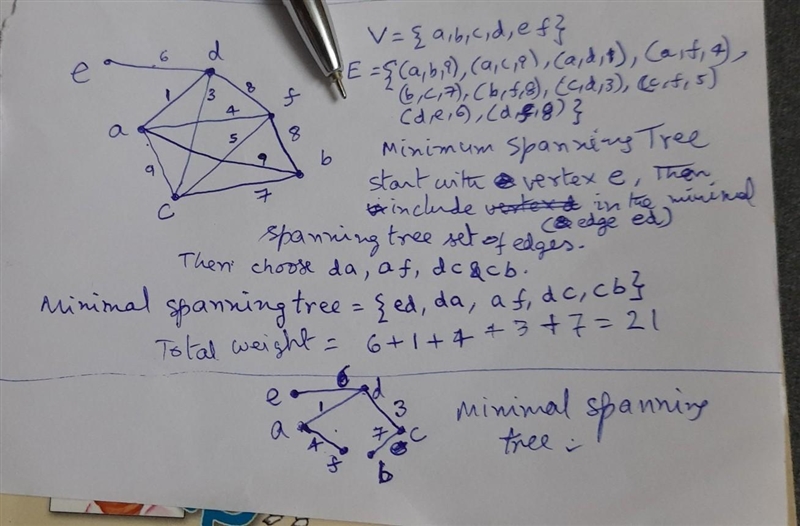 V = {a,b,c,d,e f}
E = {(a,b,9), (a,c,9), (a,d,1), (a,f,4),
(b,c,7), (b,f,8), (c,d,3), (c,f,5)
(d,e,6), (d,f,8)}
e 6 d
1 3 8 f
a 4
5 8
9 9 b
c 7
Minimum Spanning Tree
start with vertex e, Then
include in the minimal
(edge ed)
spanning tree set of edges.
Then choose da, af, dc & cb.
Minimal spanning tree = {ed, da, af, dc, cb}
Total weight = 6+1+4+3+7 = 21
e 6 d
1 3
a 7 c
4 f b
Minimal spanning
tree :-